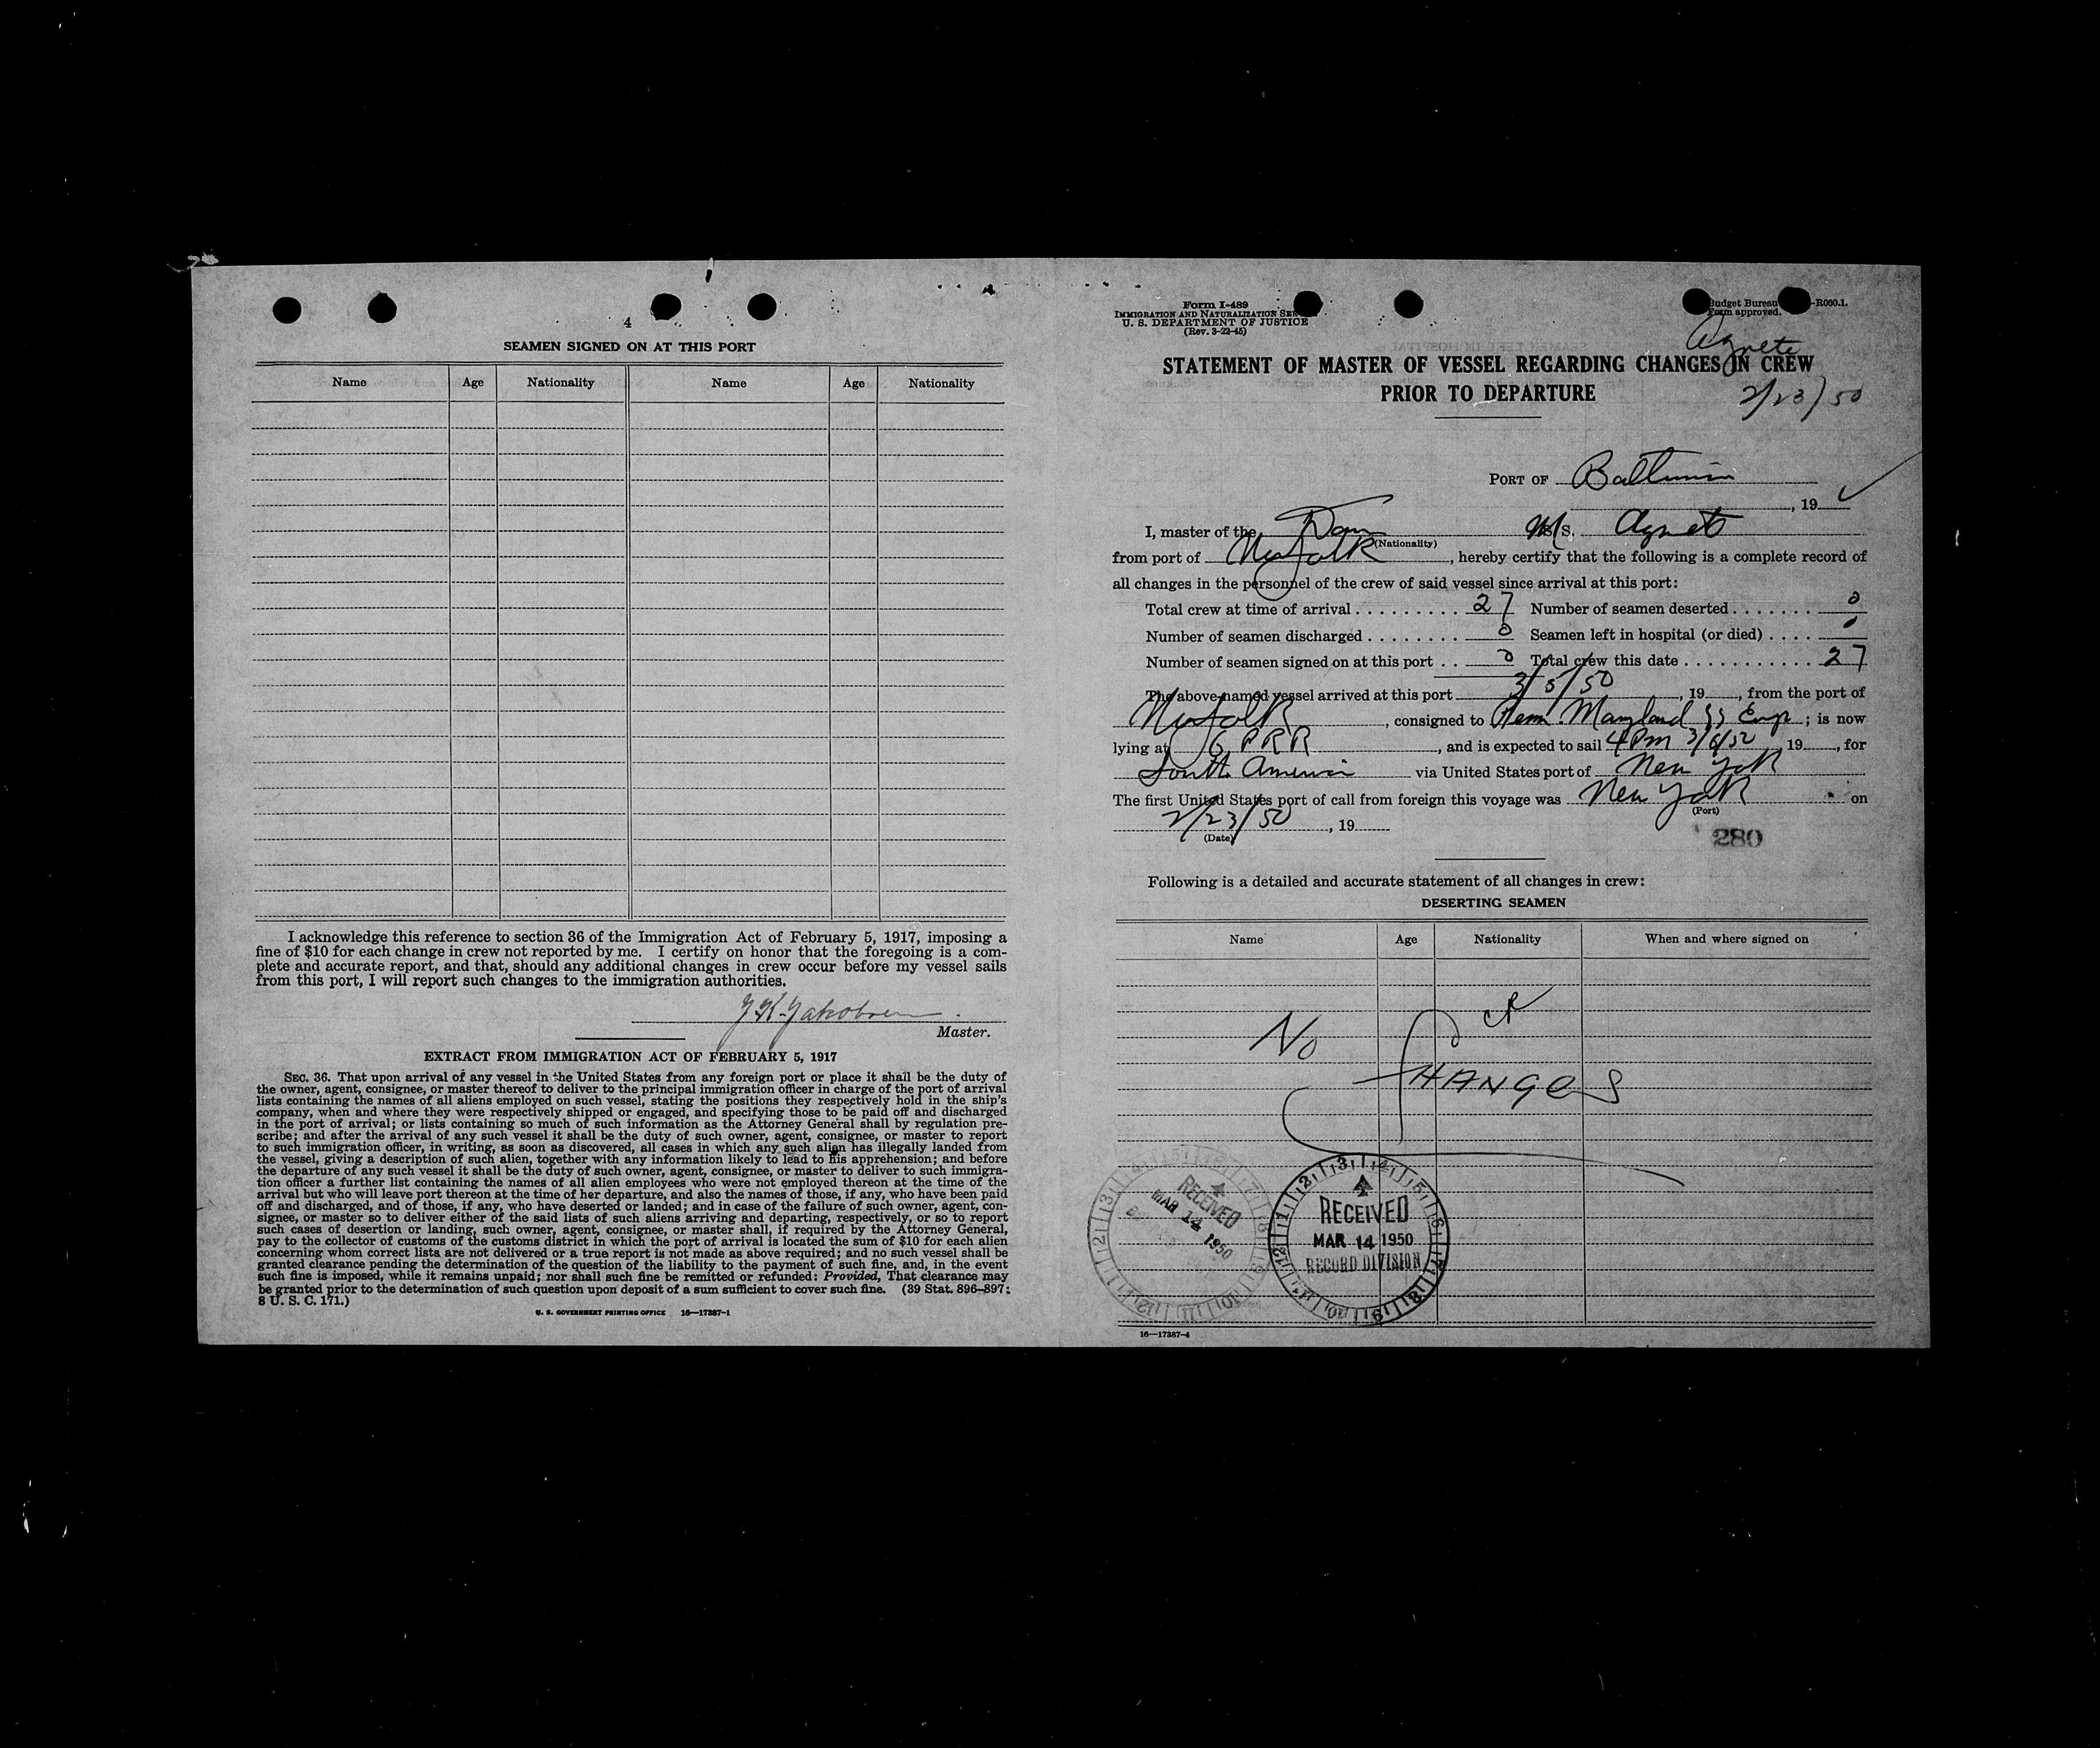 4
SEAMEN SIGNED ON AT THIS PORT
Name Age Nationality Name Age Nationality
I acknowledge this reference to section 36 of the Immigration Act of February 5, 1917, imposing a
fine of $10 for each change in crew not reported by me. I certify on honor that the foregoing is a com-
plete and accurate report, and that, should any additional changes in crew occur before my vessel sails
from this port, I will report such changes to the immigration authorities.
Master.
EXTRACT FROM IMMIGRATION ACT OF FEBRUARY 5, 1917
SEC. 36. That upon arrival of any vessel in the United States from any foreign port or place it shall be the duty of
the owner, agent, consignee, or master thereof to deliver to the principal immigration officer in charge of the port of arrival
lists containing the names of all aliens employed on such vessel, stating the positions they respectively hold in the ship's
company, when and where they were respectively shipped or engaged, and specifying those to be paid off and discharged
in the port of arrival; or lists containing so much of such information as the Attorney General shall by regulation pre-
scribe; and after the arrival of any such vessel it shall be the duty of such owner, agent, consignee, or master to report
to such immigration officer, in writing, as soon as discovered, all cases in which any such alien has illegally landed from
the vessel, giving a description of such alien, together with any information likely to lead to his apprehension; and before
the departure of any such vessel it shall be the duty of such owner, agent, consignee, or master to deliver to such immigra-
tion officer a further list containing the names of all alien employees who were not employed thereon at the time of the
arrival but who will leave port thereon at the time of her departure, and also the names of those, if any, who have been paid
off and discharged, and of those, if any, who have deserted or landed; and in case of the failure of such owner, agent, con-
signee, or master so to deliver either of the said lists of such aliens arriving and departing, respectively, or so to report
such cases of desertion or landing, such owner, agent, consignee, or master shall, if required by the Attorney General,
pay to the collector of customs of the customs district in which the port of arrival is located the sum of $10 for each alien
concerning whom correct lists are not delivered or a true report is not made as above required; and no such vessel shall be
granted clearance pending the determination of the question of the liability to the payment of such fine, and, in the event
such fine is imposed, while it remains unpaid; nor shall such fine be remitted or refunded: Provided, That clearance may
be granted prior to the determination of such question upon deposit of a sum sufficient to cover such fine. (39 Stat. 896–897;
8 U. S. C. 171.)
U. S. GOVERNMENT PRINTING OFFICE 16—17387-1
Form I-489
IMMIGRATION AND NATURALIZATION
U. S. DEPARTMENT OF JUSTICE
(Rev. 3-22-45)
Budget Bureau -R060.1.
Form approved.
Agnete
STATEMENT OF MASTER OF VESSEL REGARDING CHANGES IN CREW
PRIOR TO DEPARTURE
2/23/50
PORT OF Baltimore
, 19
I, master of the Dan M/S. Agnete
(Nationality)
from port of Norfolk, hereby certify that the following is a complete record of
all changes in the personnel of the crew of said vessel since arrival at this port:
Total crew at time of arrival 27 Number of seamen deserted 0
Number of seamen discharged 0 Seamen left in hospital (or died) 0
Number of seamen signed on at this port 0 Total crew this date 27
The above-named vessel arrived at this port 3/5/50, 19, from the port of
Norfolk, consigned to Maryland SS; is now
lying at 6 PRR, and is expected to sail 4 Pm, 19, for
South America via United States port of New York
The first United States port of call from foreign this voyage was New York on
(Port)
2/23/50, 19
(Date)
280
Following is a detailed and accurate statement of all changes in crew:
DESERTING SEAMEN
Name Age Nationality When and where signed on
No
CHANGES
RECEIVED
MAR 14 1950
RECEIVED
MAR 14 1950
RECORD DIVISION
16—17387-4